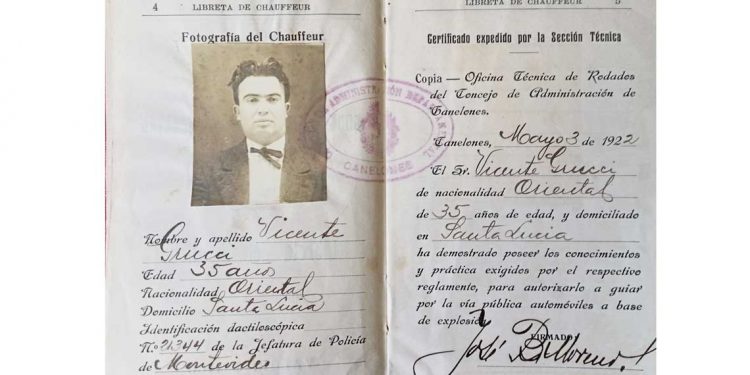 4 LIBRETA DE CHAUFFEUR
Fotografía del Chauffeur
ADMINISTRACIÓN DEPARTAMENTAL
CANELONES
Nombre y apellido Vicente
Grucci
Edad 35 años
Nacionalidad Oriental
Domicilio Santa Lucia
Identificación dactiloscópica
N.o 21344 de la Jefatura de Policía
de Montevideo
LIBRETA DE CHAUFFEUR 5
Certificado expedido por la Sección Técnica
Copia — Oficina Técnica de Rodados
del Concejo de Administración de
Canelones.
Canelones, Mayo 3 de 1922
El Sr. Vicente Grucci
de nacionalidad Oriental
de 35 años de edad, y domiciliado
en Santa Lucia
ha demostrado poseer los conocimientos
y práctica exigidos por el respectivo
reglamento, para autorizarlo a guiar
por la vía pública automóviles a base
de explosión.
FIRMADO
José B. Moreno